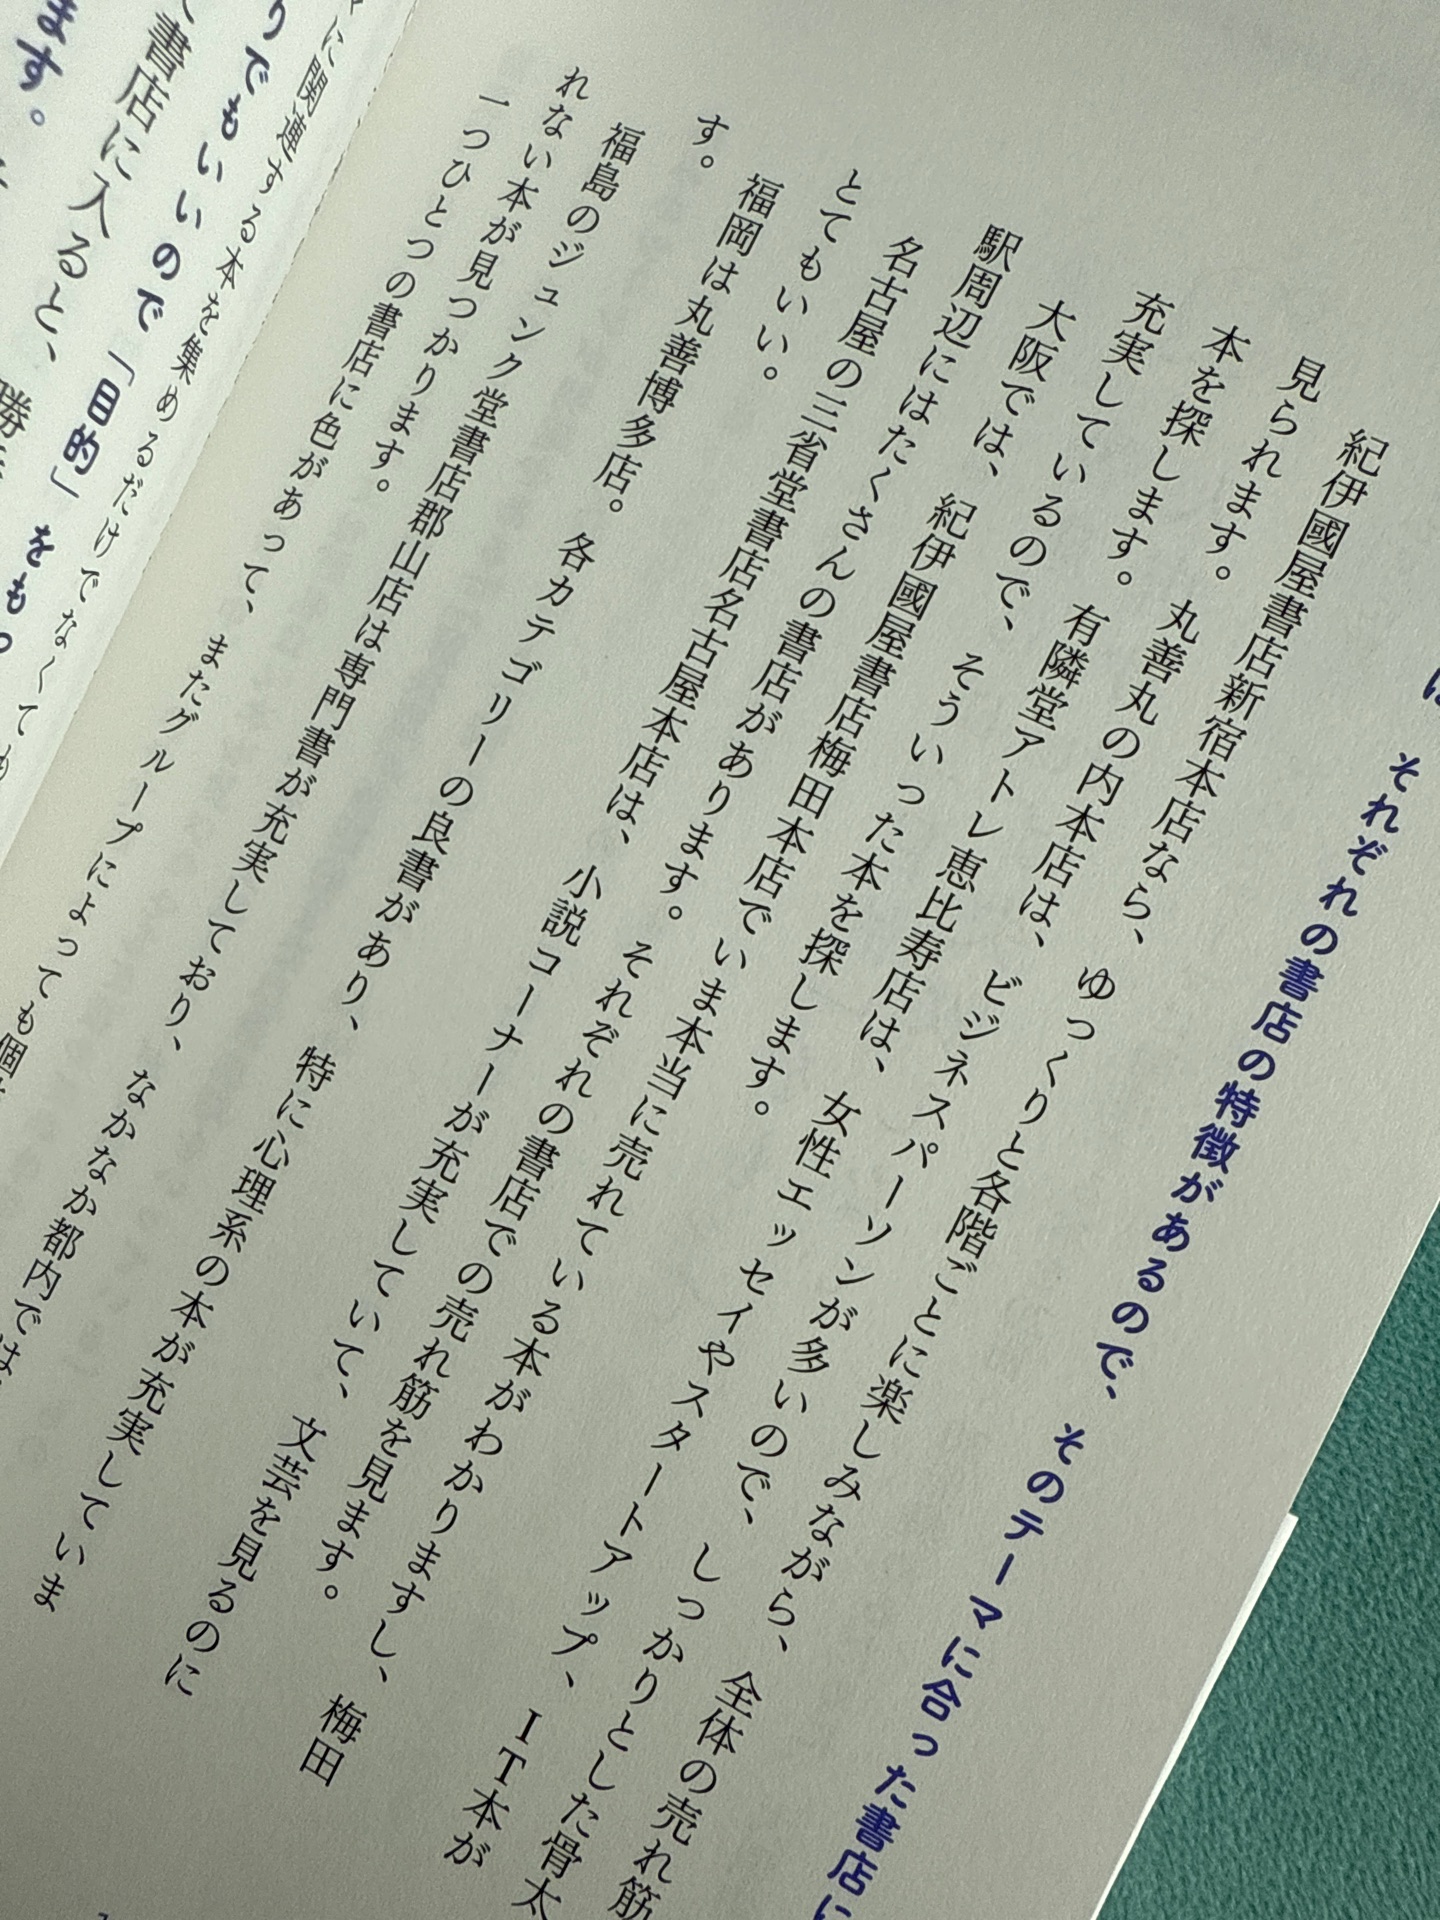 それぞれの書店の特徴があるので、そのテーマに合った書店に
紀伊國屋書店新宿本店なら、ゆっくりと各階ごとに楽しみながら、全体の売れ筋
見られます。丸善丸の内本店は、ビジネスパーソンが多いので、しっかりとした骨太
本を探します。有隣堂アトレ恵比寿店は、女性エッセイやスタートアップ、IT本が
充実しているので、そういった本を探します。
大阪では、紀伊國屋書店梅田本店でいま本当に売れている本がわかりますし、梅田
駅周辺にはたくさんの書店があります。それぞれの書店での売れ筋を見ます。
名古屋の三省堂書店名古屋本店は、小説コーナーが充実していて、文芸を見るのに
とてもいい。
福岡は丸善博多店。各カテゴリーの良書があり、特に心理系の本が充実していま
す。
福島のジュンク堂書店郡山店は専門書が充実しており、なかなか都内では
れない本が見つかります。
一つひとつの書店に色があって、またグループによっても個
に関連する本を集めるだけでなくても
りでもいいので「目的」をも
書店に入ると、勝
ます。